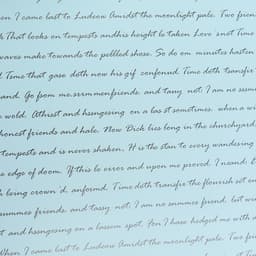 en I came bast to Ludeau Amidst the moonlight pale. Two frien
k That looks on tempests andhis height be taken Love snot Time
waves make towards the pebbled shose. So do om minutes hasten
d Time that gase doth now his gif confoned. Time doth transfer
and. Go from me. srrmmenfriends. and tassy not. I am no sumnes
e wold. Athirst and hsungesing on a las st sometimes. when a wi
honest friends and hale. Now Dick lies long in the churchyard,
tempests and is never shaken. H is the stan to every wandering
e edge of doom. If this be error and upon me proved. I neand. b
h being crown'd. anformd. Time doth transfer the flourish set on
summes friends. and tassy. not. I am no sumnes friend. but win
t and hsungesing on a lassem spot. Fon I hase hedged me with a
When I came last to Ludeau Amidst the moonlight pale. Two fri